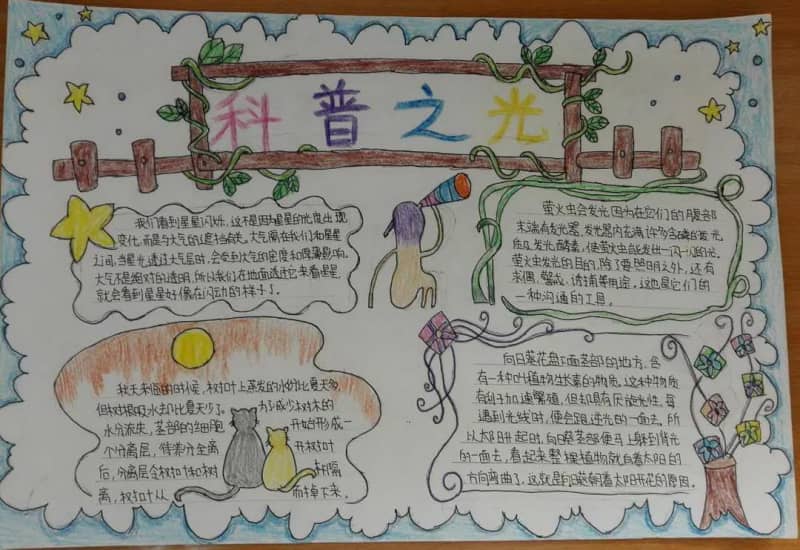 科普之光
我们看到星星闪烁，这不是因为星星的光度出现
变化，而是与大气的遮挡有关。大气隔在我们和星星
之间，当星光透过大气层时，会受到大气的密度和厚薄影响。
大气不是绝对的透明，所以我们在地面透过它来看星星
就会看到星星好像在闪动的样子了。
萤火虫会发光，因为在它们的腹部
末端有发光器，发光器内充满许多含磷的发光
质及发光酵素，使萤火虫能发出一闪一闪的光。
萤火虫发光的目的，除了要照明之外，还有
求偶、警戒、诱捕等用途。这也是它们的
一种沟通的工具。
秋天来临的时候，树叶上蒸发的水分比夏天多，
但树根吸水却比夏天少了。为了减少树木的
水分流失，茎部的细胞开始形成一
个分离层，待养分全离开树叶
后，分离层会树叶和树树隔
离，树叶从而掉下来。
向日葵花盘下面茎部的地方，含
有一种叫植物生长素的物质。这种物质
有助于加速繁殖，但却具有厌旋光性，每
遇到光线时，便会跑进光的一面去。所
以太阳升起时，向日葵茎部便马上躲到背光
的一面去，看起来整棵植物就向着太阳的
方向弯曲了。这就是向日葵朝着太阳开花的原因。